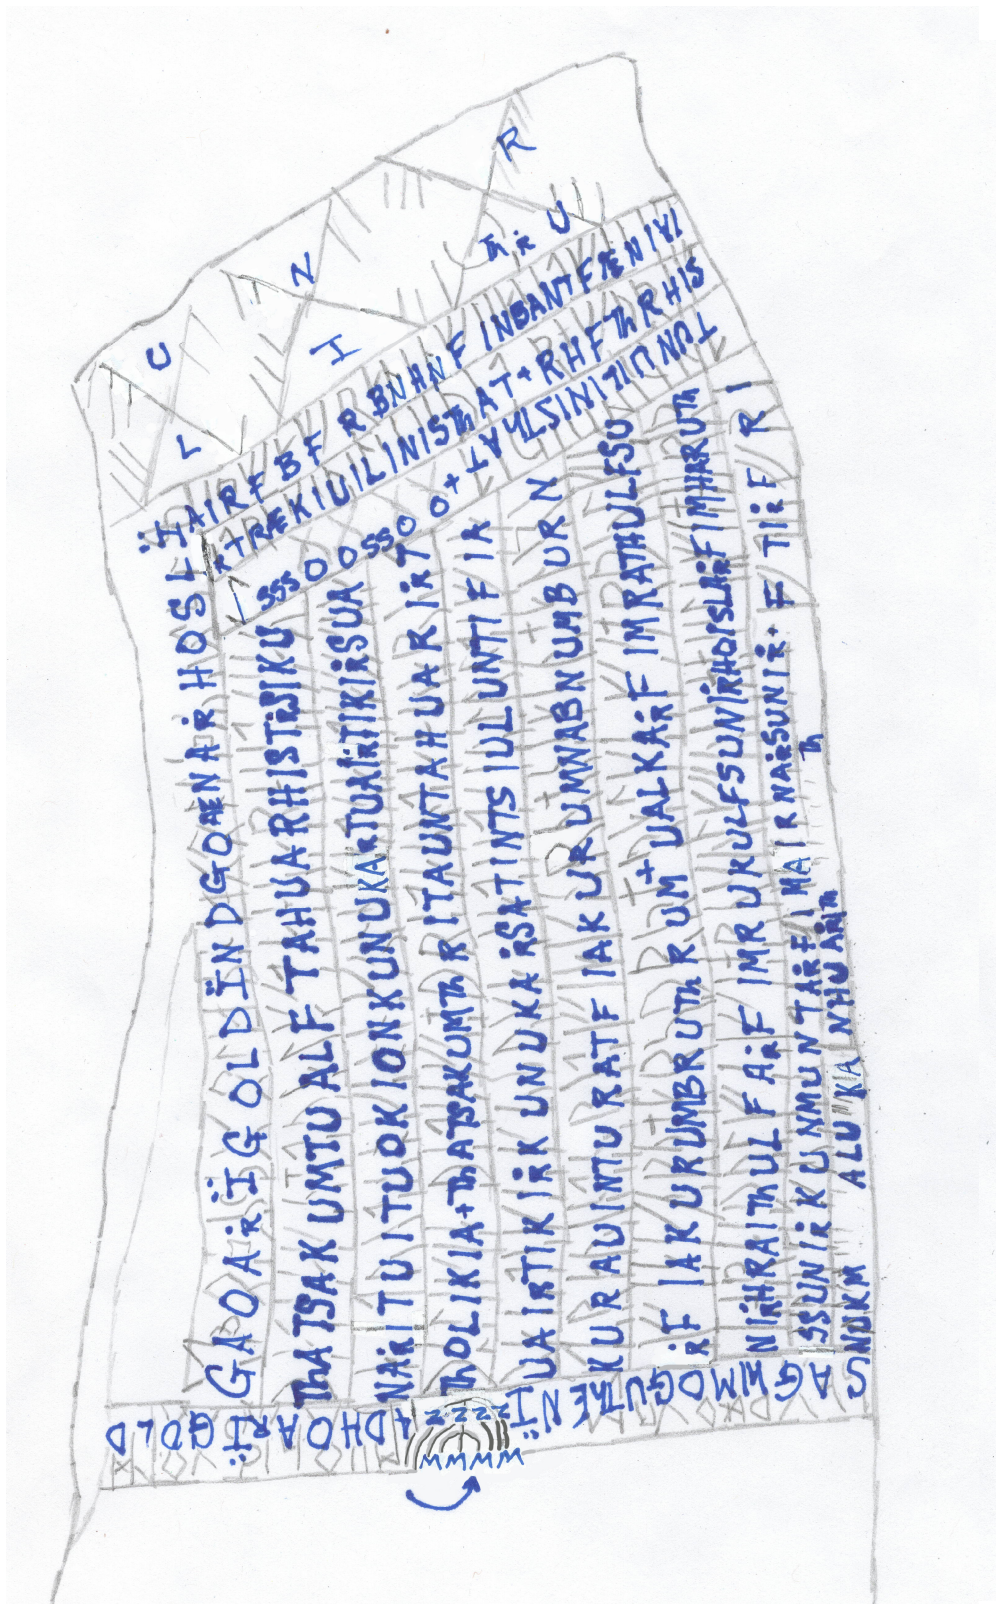 U N R
L I Th iR U
AIRFBFRBNHNFINBANTFÆNIAI
RTRÆKIUILINISThAT+RHFThRHIS
SSSOOSSOO++
TUNUILINISThAT
GAOAiRÏGOLDÏNDGOÆNAiRHOSLÏ
ThATSAKUMTUALFTAHUARHISTiRSIKU
NAiRITUITUOKIONKUNUKAiRTUAIiRTIKIiRSUA
ThOLIKIA+ThATSAKUMThRITAUNTAHUARIiRT
UAIiRTIKIiRKUNUKAiRSATINTSIULUNTIFIR
KURAUINTURATFIAKURUMNABNUMBURN
iRFIAKURUMBRUThRUM+UALKAiRFIMRAThULFSU
NIiRHRAIThULFAiRFIMRUKULFSUNIiRHOISLAiRFIMHARUTh
SSUNIiRKUNMUNTAiRFIMAIRNAiRSUNIiR·FTIiRFRI
NUKM ALU KAINHUAiRITh Th
SAGWMOGUTHENÏ
ZZZZ
MMMM
ADHOARÏGOLD